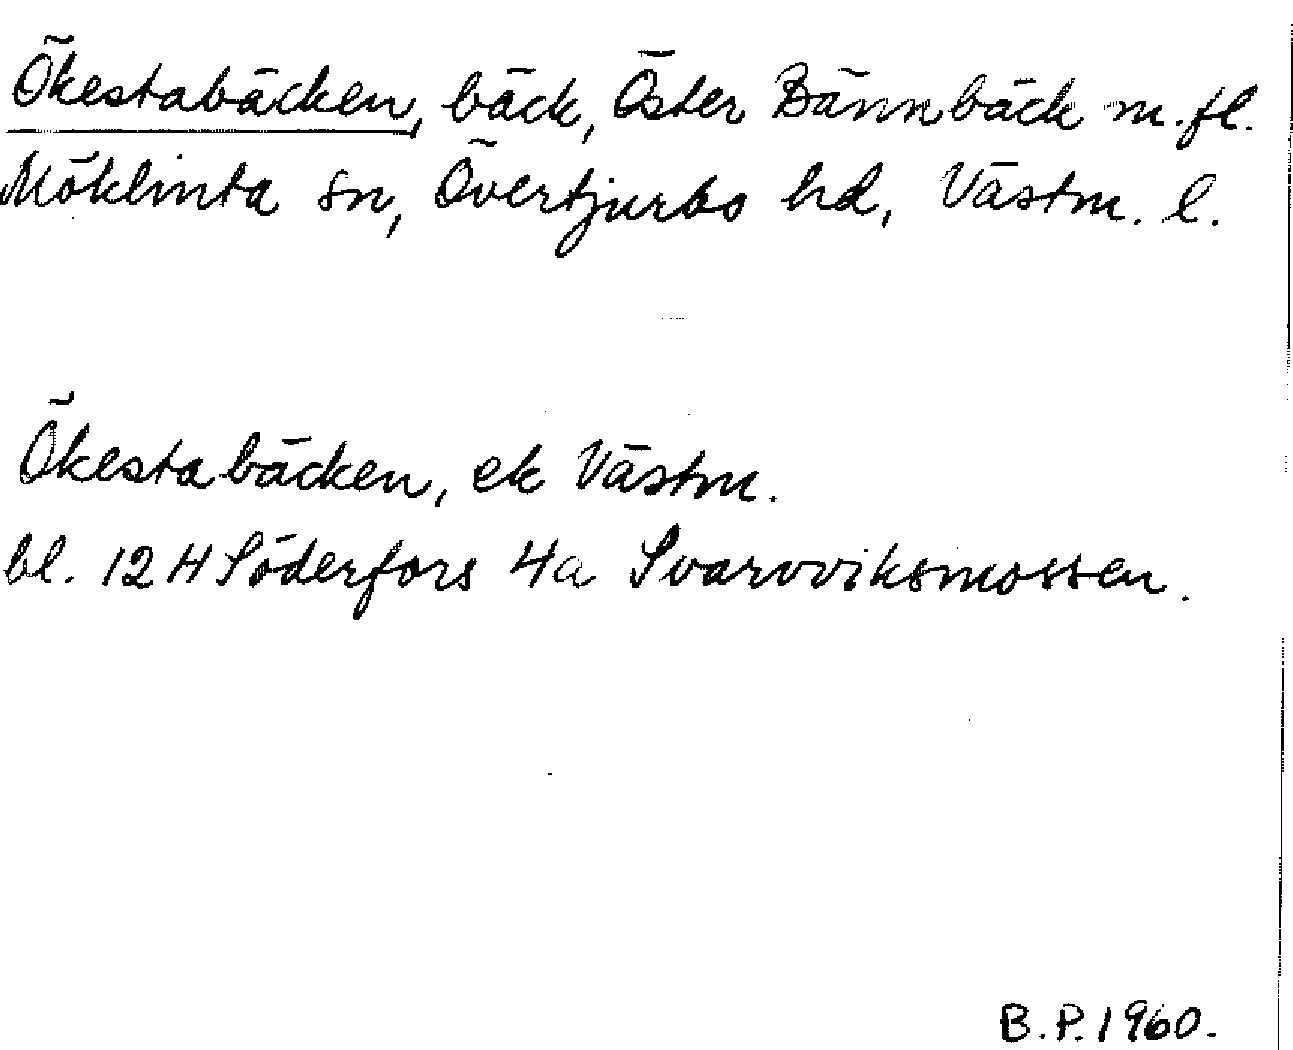 Ökestabäcken, bäck, Öster Bännbäck m.fl.
Möklinta sn, Övertjurbo hd, Västm. l.
Ökestabäcken, ek Västm.
bl. 12 H Söderfors 4a Svarvviksmossen.
B.P. 1960.